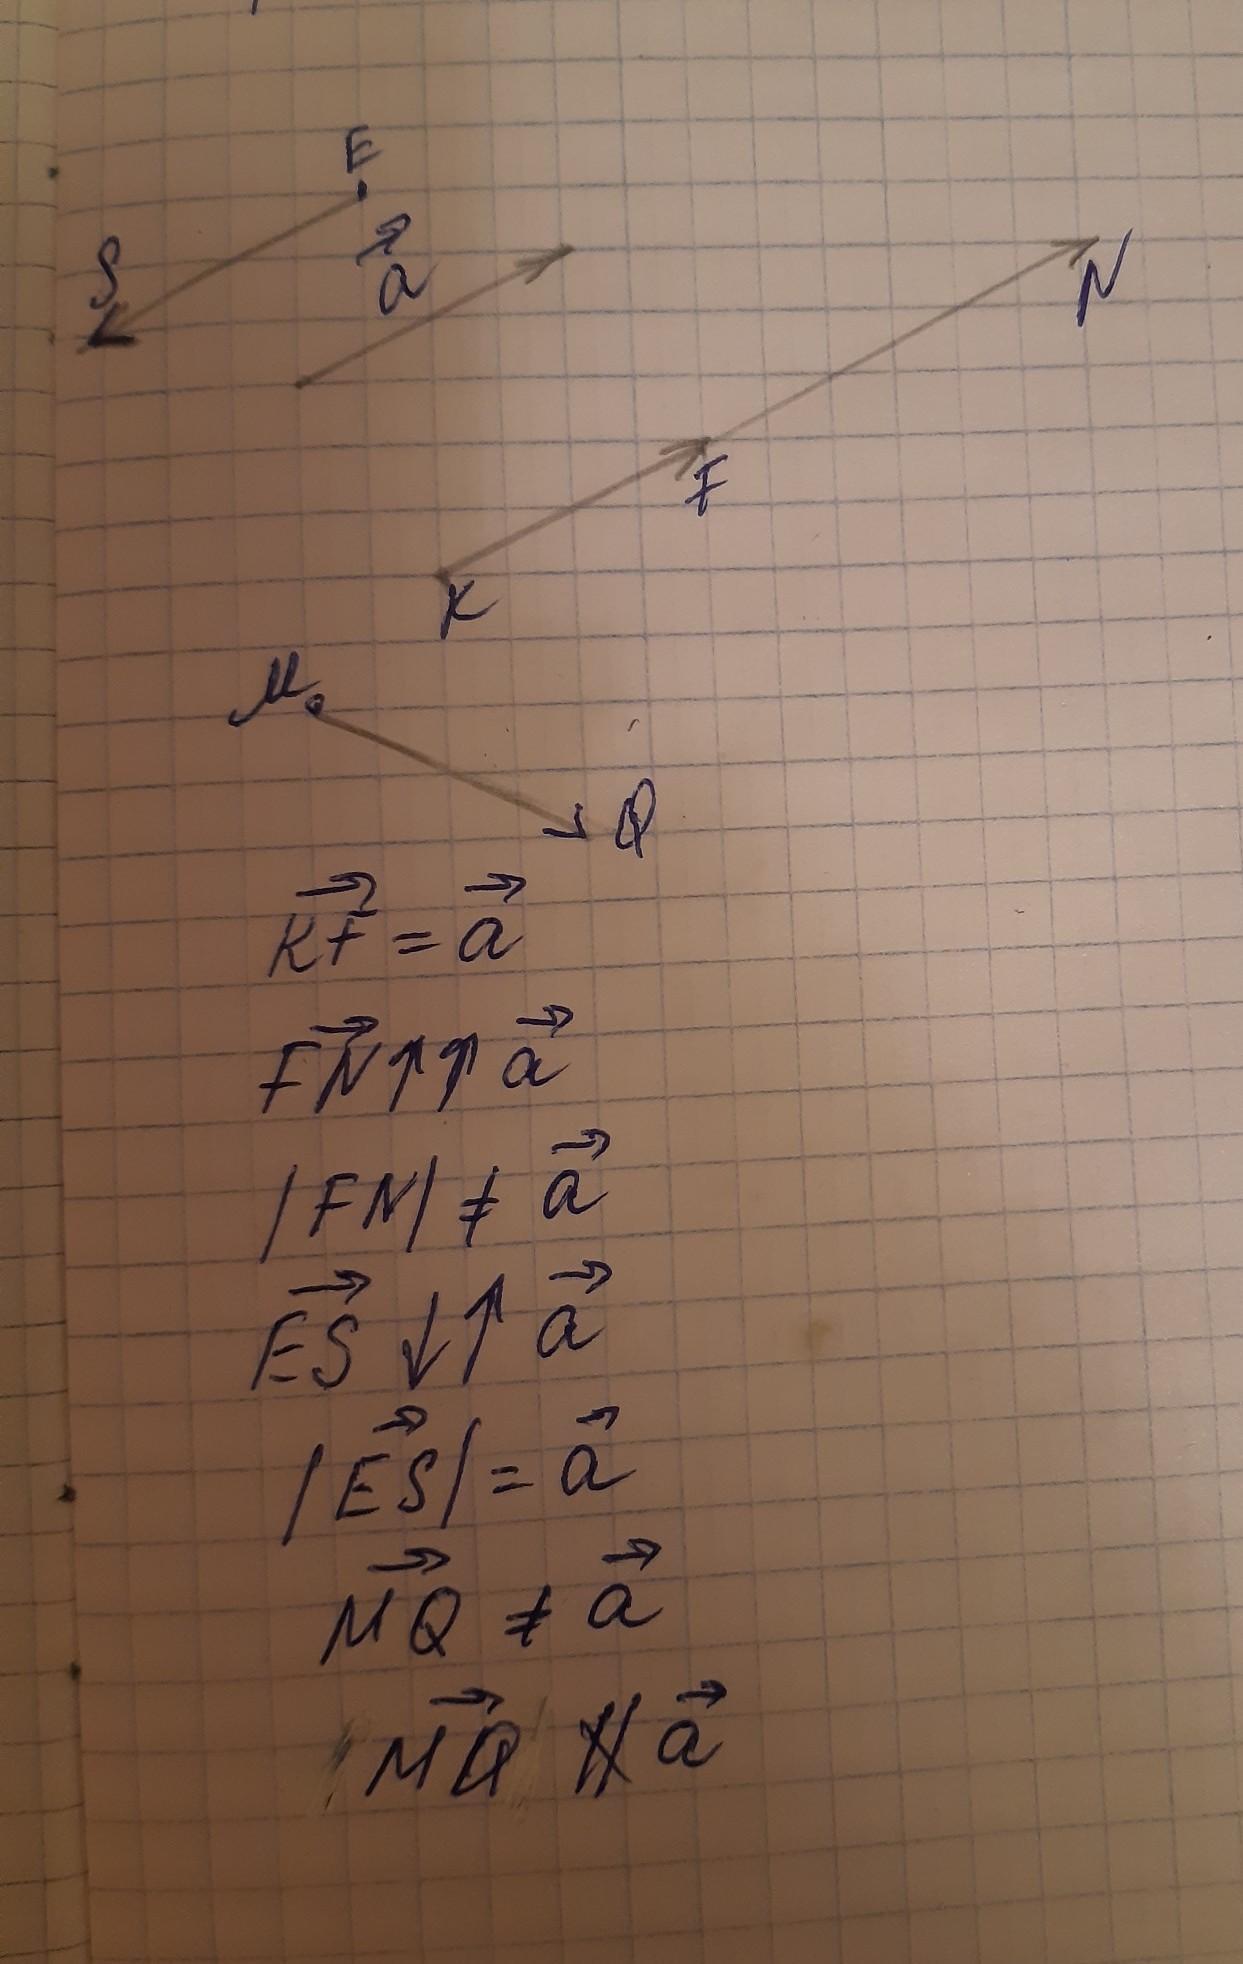 E
S
a⃗
N
F
K
M
Q
K⃗F⃗ = a⃗
F⃗N⃗ ↑↑ a⃗
|FN| ≠ a⃗
E⃗S⃗ ↓↑ a⃗
|E⃗S⃗| = a⃗
M⃗Q⃗ ≠ a⃗
M⃗Q⃗ ∦ a⃗